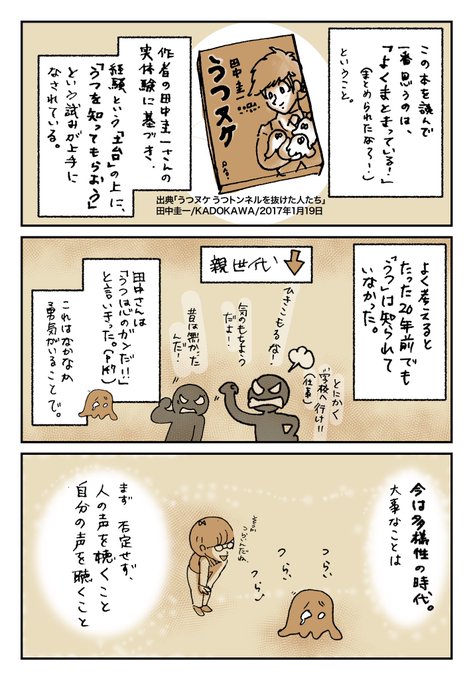 この本を読んで
一番思うのは、
「よくまとまっている!」
(まとめられたなぁ〜!)
ということ。
田中圭一
うつヌケ
作者の田中圭一さんの
実体験に基づき、
経験という「土台」の上に、
「うつを知ってもらおう」
という試みが上手に
なされている。
出典「うつヌケ うつトンネルを抜けた人たち」
田中圭一/KADOKAWA/2017年1月19日
よく考えると
たった20年前でも
「うつ」は知られて
いなかった。
親世代
ひきこもるな!
気のもちよう
だよ!
昔は働かった
んだ!
とにかく
学校へ行け!!
(仕事)
田中さんは
「うつは心のガンだ!!」
と言いきった。
これはなかなか
勇気がいることで。
今は多様性の時代。
大事なことは
つらい
つらい
つらい
まず 否定せず、
人の声を聴くこと
自分の声を聴くこと